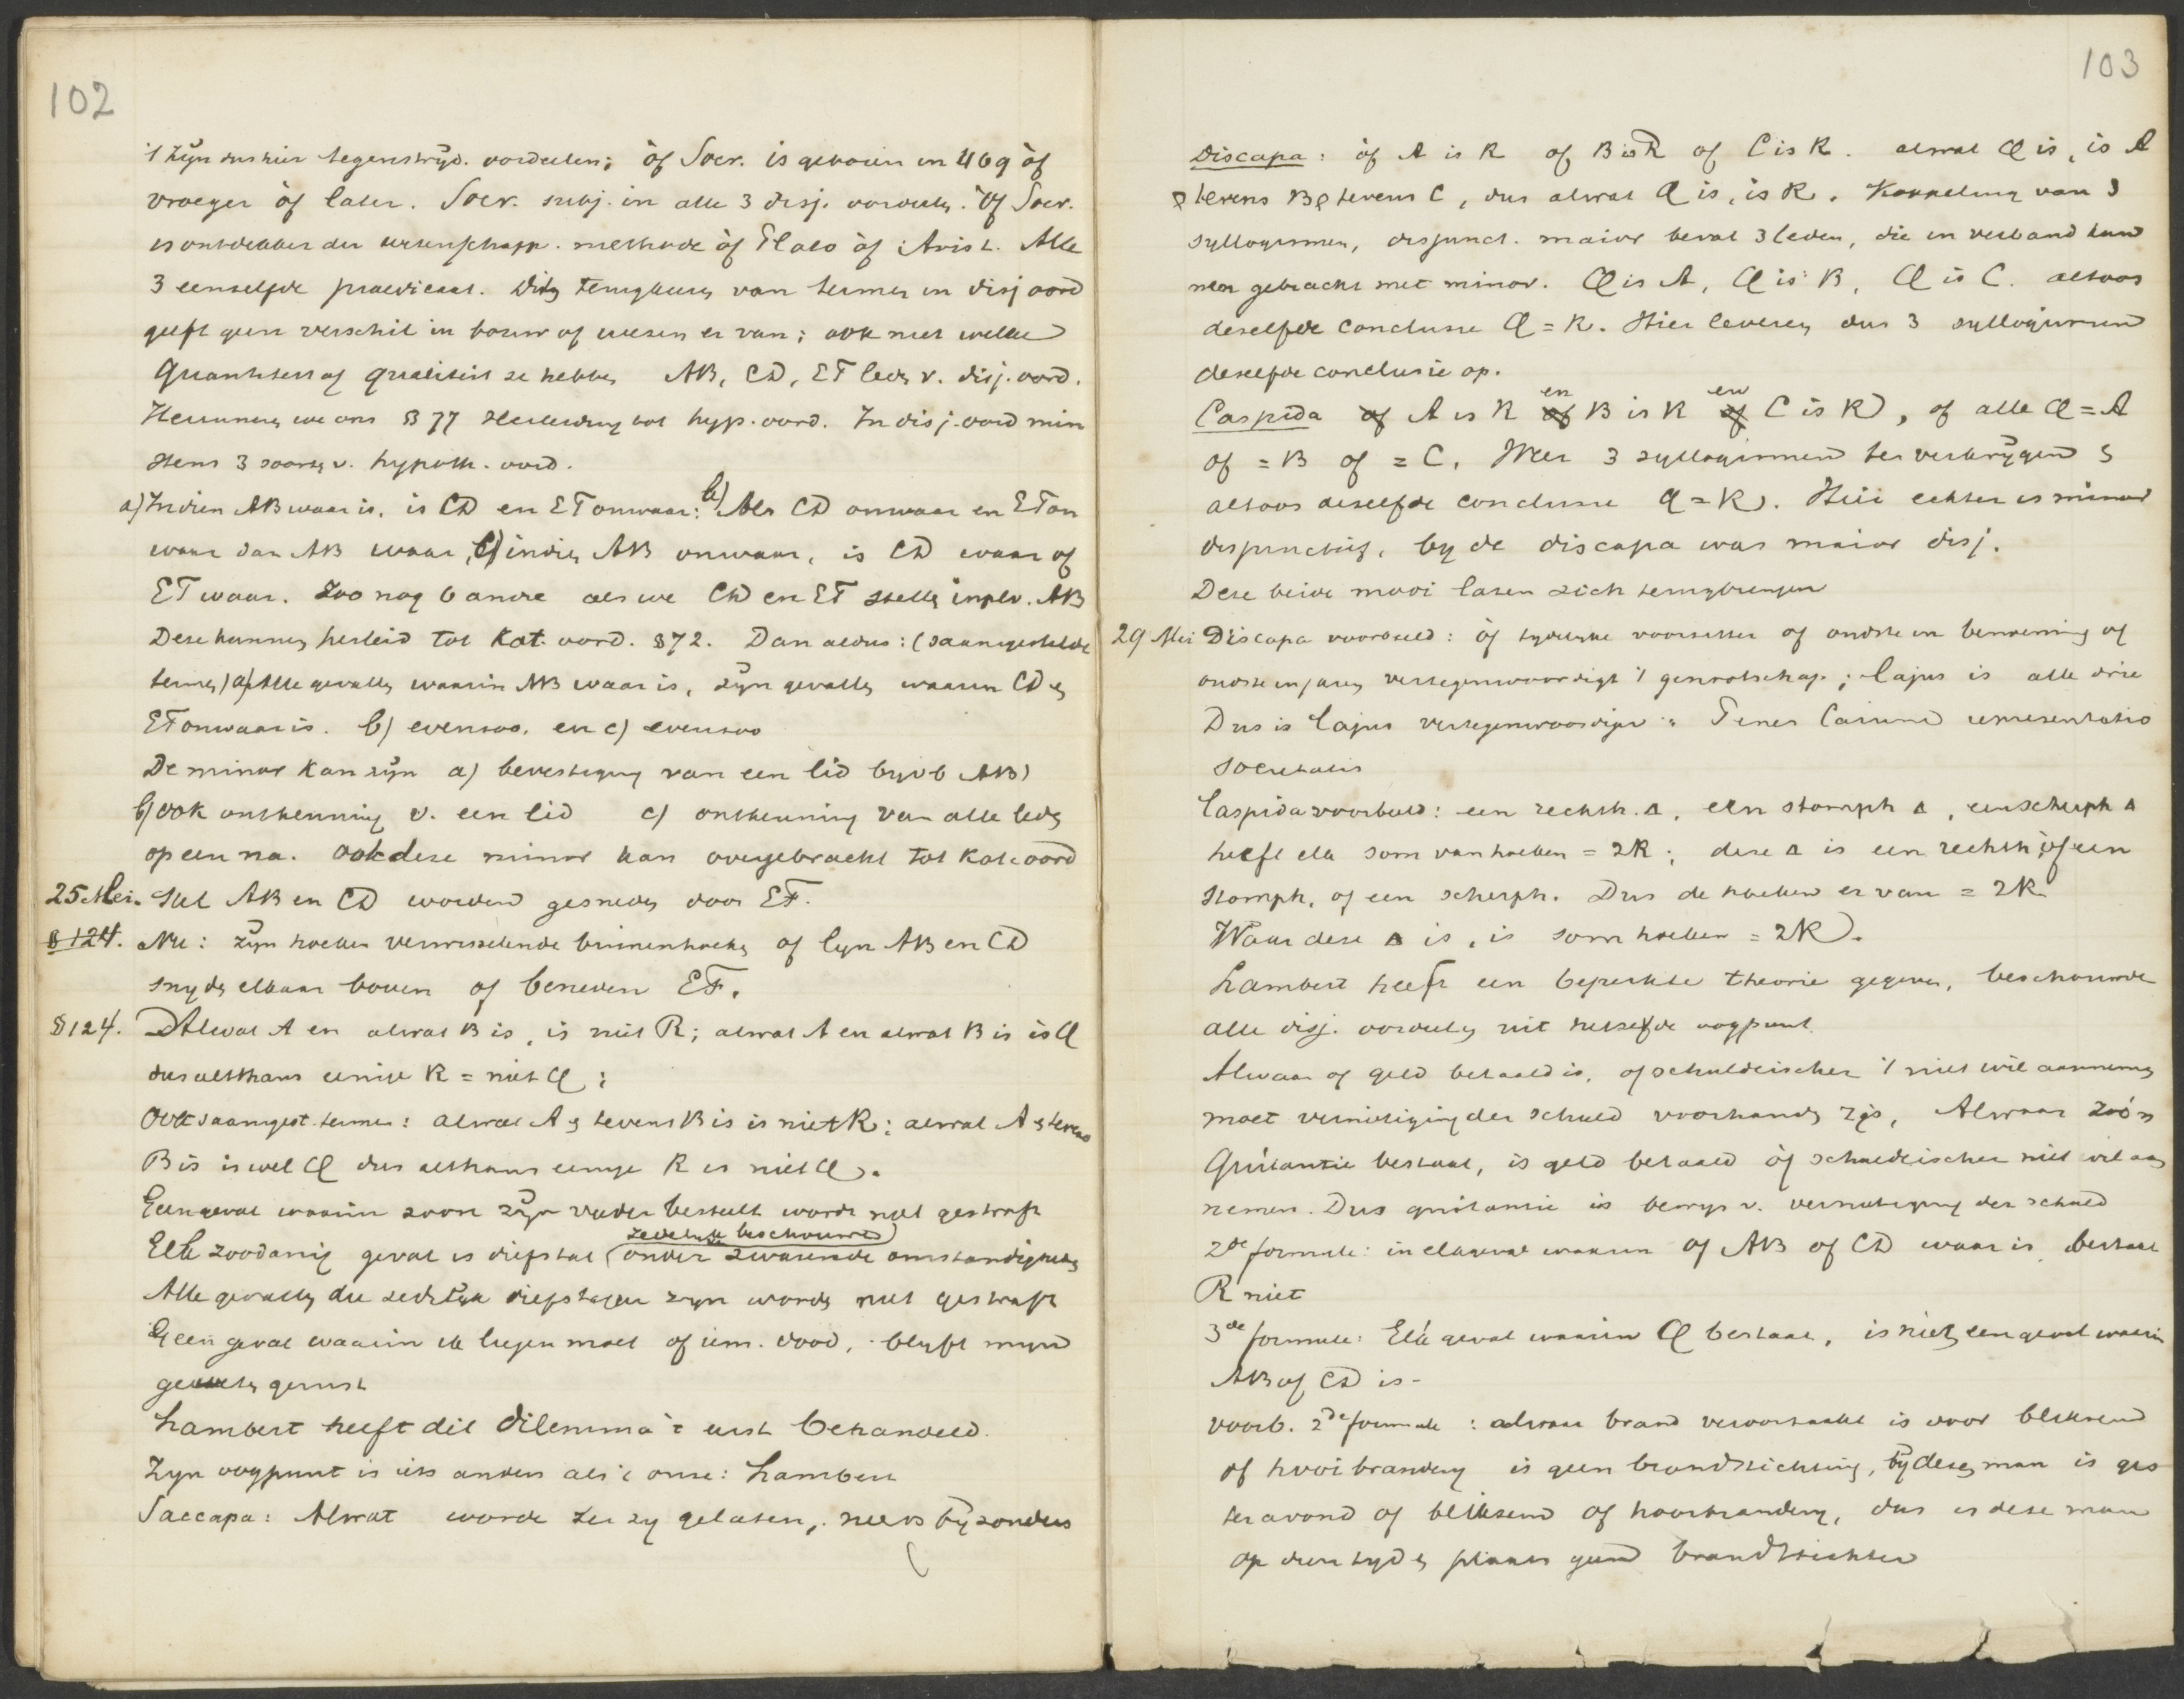 102
't zijn dus hier tegenstrijd. oordeelen; òf Socr. is geboren in 469 òf
vroeger òf later. Socr. subj. in alle 3 disj. oordeelen. Òf Socr.
is ontdekker der wetenschapp. methode òf Plato òf Arist. Alle
3 eenzelfde praedicaat. Dit van termen in disj oord
geeft geen verschil in bouw of wezen er van; ook niet welke
Quantiteit of qualiteit ze hebben AB, CD, EF leden v. disj. oord.
Herinneren we ons § 77 Herleiding tot hyp. oord. In disj. oord min
stens 3 soorten v. hypoth. oord.
a) Indien AB waar is, is CD en EF onwaar; b) Als CD onwaar en EF on
waar dan AB waar, c) indien AB onwaar, is CD waar of
EF waar. Zoo nog 6 andre als we CD en EF stellen in pl. v. AB
Deze kunnen herleid tot Kat. oord. § 72. Dan aldus: (saamgestelde
termen) a) Alle gevallen waarin AB waar is, zijn gevallen waarin CD en
EF onwaar is. b) evenzoo, en c) evenzoo
De minor kan zijn a) bevestiging van een lid bijvb AB)
b) ook ontkenning v. een lid c) ontkenning van alle leden
op een na. Ook deze minor kan overgebracht tot Kat. oord
25 Mei. Stel AB en CD worden gesneden door EF.
§ 124. Nu: zijn hoeken verwisselende binnenhoeken of lijn AB en CD
snijden elkaar boven of beneden EF.
§ 124. Alwat A en alwat B is, is niet R; alwat A en alwat B is is Q
dus althans eenige R = niet Q;
Ook saamgest. termen: alwat A en tevens B is is niet R; alwat A en tevens
B is is wel Q dus althans eenige R is niet Q.
Geen geval waarin zoon zijn vader besteelt wordt niet gestraft
zedelijk beschouwd
Elk zoodanig geval is diefstal (onder zwarende omstandigheden
Alle gevallen die zedelijk diefstallen zijn worden niet gestraft
Geen geval waarin ik liegen moet of iem. dood, blijft mijn
geweten gerust
Lambert heeft dit dilemma 't eerst behandeld.
Zijn oogpunt is iets anders als 't onze: Lambert
Saccapa: Alwat worde ter zij gelaten, niets bijzonders
103
Discapa: òf A is R of B is R of C is R. alwat Q is, is A
en tevens B en tevens C, dus alwat Q is, is R. Koppeling van 3
syllogismen, disjunct. maior bevat 3 leden, die in verband kun
nen gebracht met minor. Q is A, Q is B, Q is C. altoos
dezelfde conclusie Q = R. Hier leveren dus 3 syllogismen
dezelfde conclusie op.
Caspida of A is R en B is R en C is R, of alle Q = A
of = B of = C. Weer 3 syllogismen te verkrijgen
altoos dezelfde conclusie Q = R. Hier echter is minor
disjunctief, bij de discapa was maior disj.
Deze beide modi laten zich terugbrengen
29 Mei Discapa voorbeeld: òf tijdelijke voorzitter of oudste in benoeming of
oudste in jaren vertegenwoordigt 't genootschap; Cajus is alle drie
Dus is Cajus vertegenwoordiger. Penes Caium representatio
societatis
Caspida voorbeeld: een rechth. Δ, een stomph Δ, een scherph Δ
heeft elk som van hoeken = 2R; deze Δ is een rechth, of een
stomph, of een scherph. Dus de hoeken er van = 2R
Waar deze Δ is, is som hoeken = 2R.
Lambert heeft een beperkte theorie gegeven, beschouwde
alle disj. oordeelen uit hetzelfde oogpunt.
Alwaar of geld betaald is, of schuldeischer 't niet wil aannemen
moet vernietiging der schuld voorhanden zijn, Alwaar zoo'n
Quitantie bestaat, is geld betaald òf schuldeischer niet wil aan
nemen. Dus quitantie is bewijs v. vernietiging der schuld
2de formule: in elk geval waarin of AB of CD waar is bestaat
R niet
3de formule: Elk geval waarin Q bestaat, is niet een geval waarin
AB of CD is -
voorb. 2de formule: alwaar brand veroorzaakt is door bliksem
of hooibranding is geen brandstichting, bij dezen man is gis
teravond of bliksem of hooibranding, dus is deze man
op dien tijd en plaats geen brandstichter